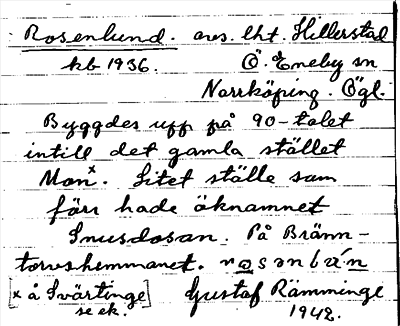 Rosenlund. avs. lht. Hillerstad
kb 1936. Ö. Eneby sn
Norrköping. Ögl.
Byggdes upp på 90-talet
intill det gamla stället
Monˣ. Litet ställe som
förr hade öknamnet
Snusdosan. På Bränn-
torvshemmanet.
[x å Svärtinge] Gustaf Rämminge
se ek. 1942.